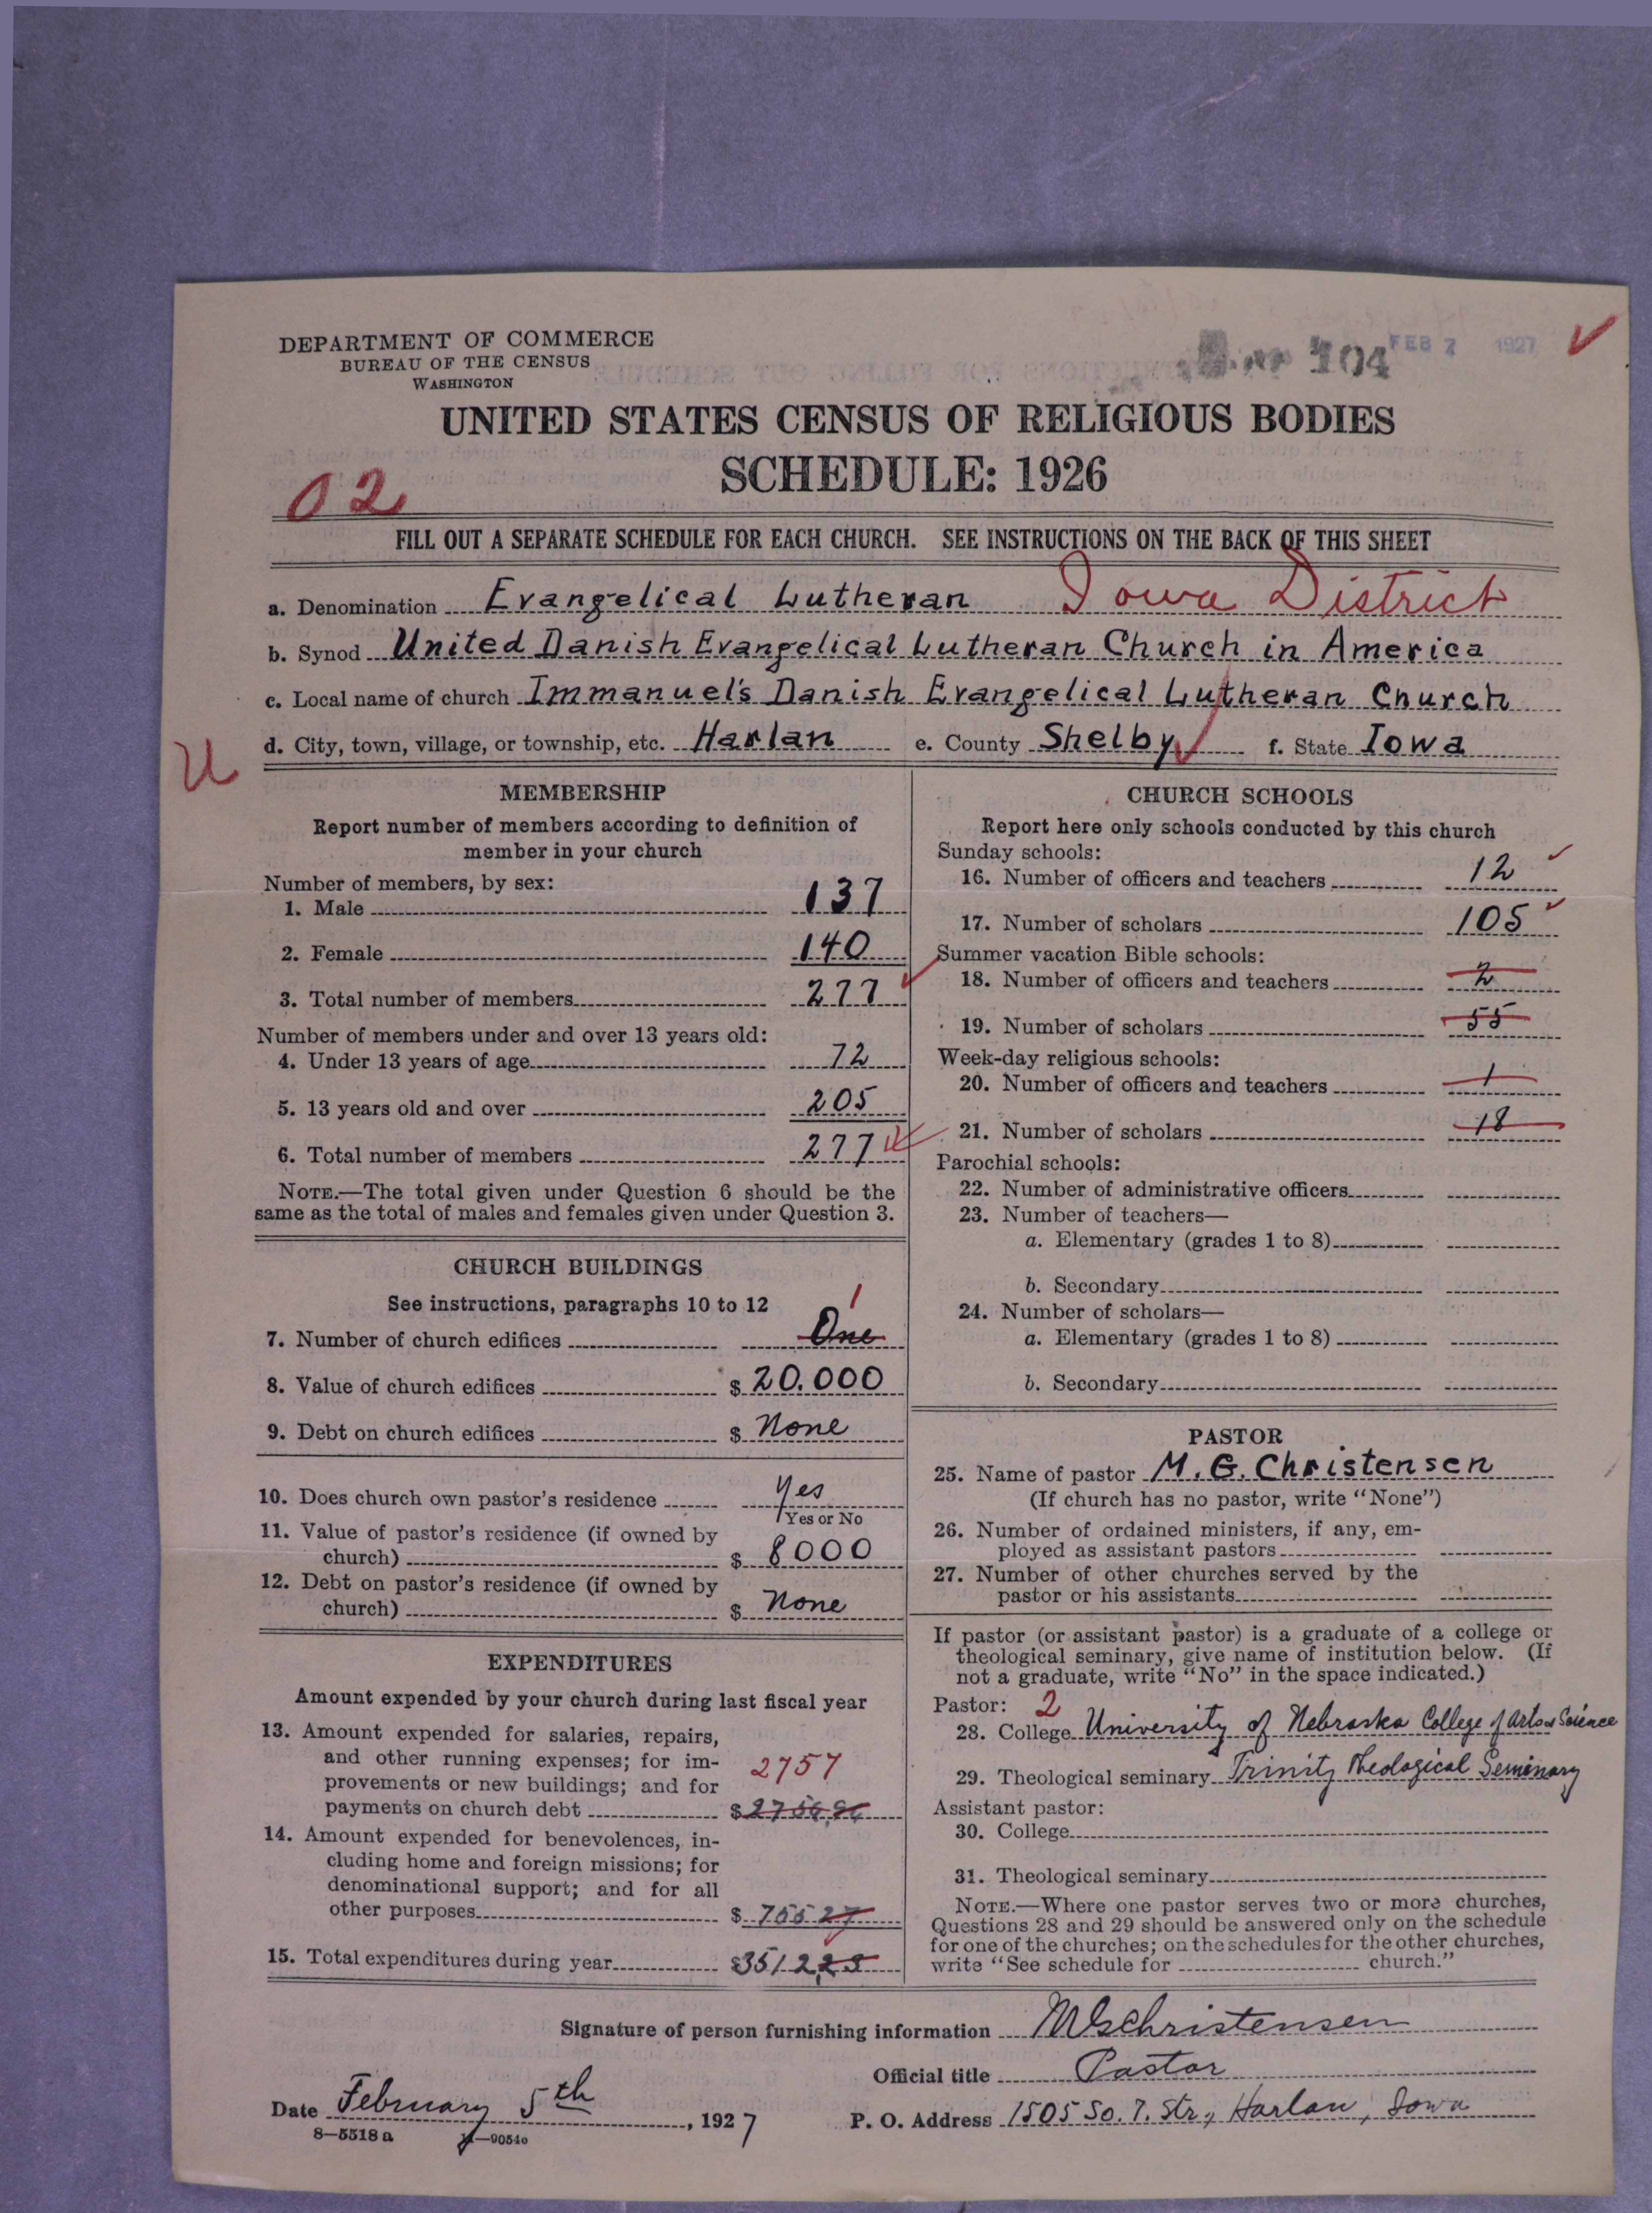 DEPARTMENT OF COMMERCE
BUREAU OF THE CENSUS
WASHINGTON
104
FEB 7 1927
UNITED STATES CENSUS OF RELIGIOUS BODIES
SCHEDULE: 1926
02
FILL OUT A SEPARATE SCHEDULE FOR EACH CHURCH. SEE INSTRUCTIONS ON THE BACK OF THIS SHEET
a. Denomination Evangelical Lutheran Iowa District
b. Synod United Danish Evangelical Lutheran Church in America
c. Local name of church Immanuel's Danish Evangelical Lutheran Church
d. City, town, village, or township, etc. Harlan e. County Shelby f. State Iowa
U
MEMBERSHIP
Report number of members according to definition of
member in your church
Number of members, by sex:
1. Male 137
2. Female 140
3. Total number of members 277
Number of members under and over 13 years old:
4. Under 13 years of age 72
5. 13 years old and over 205
6. Total number of members 277
NOTE.—The total given under Question 6 should be the
same as the total of males and females given under Question 3.
CHURCH BUILDINGS
See instructions, paragraphs 10 to 12
1
7. Number of church edifices One
8. Value of church edifices $ 20.000
9. Debt on church edifices $ None
10. Does church own pastor's residence Yes
Yes or No
11. Value of pastor's residence (if owned by
church) $ 8000
12. Debt on pastor's residence (if owned by
church) $ None
EXPENDITURES
Amount expended by your church during last fiscal year
13. Amount expended for salaries, repairs,
and other running expenses; for im-
2757
provements or new buildings; and for
payments on church debt $ 2756.96
14. Amount expended for benevolences, in-
cluding home and foreign missions; for
denominational support; and for all
other purposes $ 755 27
15. Total expenditures during year $3512.23
CHURCH SCHOOLS
Report here only schools conducted by this church
Sunday schools:
16. Number of officers and teachers 12
17. Number of scholars 105
Summer vacation Bible schools:
18. Number of officers and teachers 2
19. Number of scholars 55
Week-day religious schools:
20. Number of officers and teachers 1
21. Number of scholars 18
Parochial schools:
22. Number of administrative officers
23. Number of teachers—
a. Elementary (grades 1 to 8)
b. Secondary
24. Number of scholars—
a. Elementary (grades 1 to 8)
b. Secondary
PASTOR
25. Name of pastor M. G. Christensen
(If church has no pastor, write "None")
26. Number of ordained ministers, if any, em-
ployed as assistant pastors
27. Number of other churches served by the
pastor or his assistants
If pastor (or assistant pastor) is a graduate of a college or
theological seminary, give name of institution below. (If
not a graduate, write "No" in the space indicated.)
Pastor: 2
28. College University of Nebraska College of Arts & Science
29. Theological seminary Trinity Theological Seminary
Assistant pastor:
30. College
31. Theological seminary
NOTE.—Where one pastor serves two or more churches,
Questions 28 and 29 should be answered only on the schedule
for one of the churches; on the schedules for the other churches,
write "See schedule for church."
Signature of person furnishing information MGChristensen
Official title Pastor
Date February 5th, 1927 P. O. Address 1505 So. 7. Str., Harlan, Iowa
8—5518 a —9054o